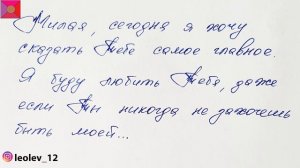 Милая, сегодня я хочу
сказать Тебе самое главное.
Я буду любить Тебя, даже
если Ты никогда не захочешь
быть моей...
leolev_12